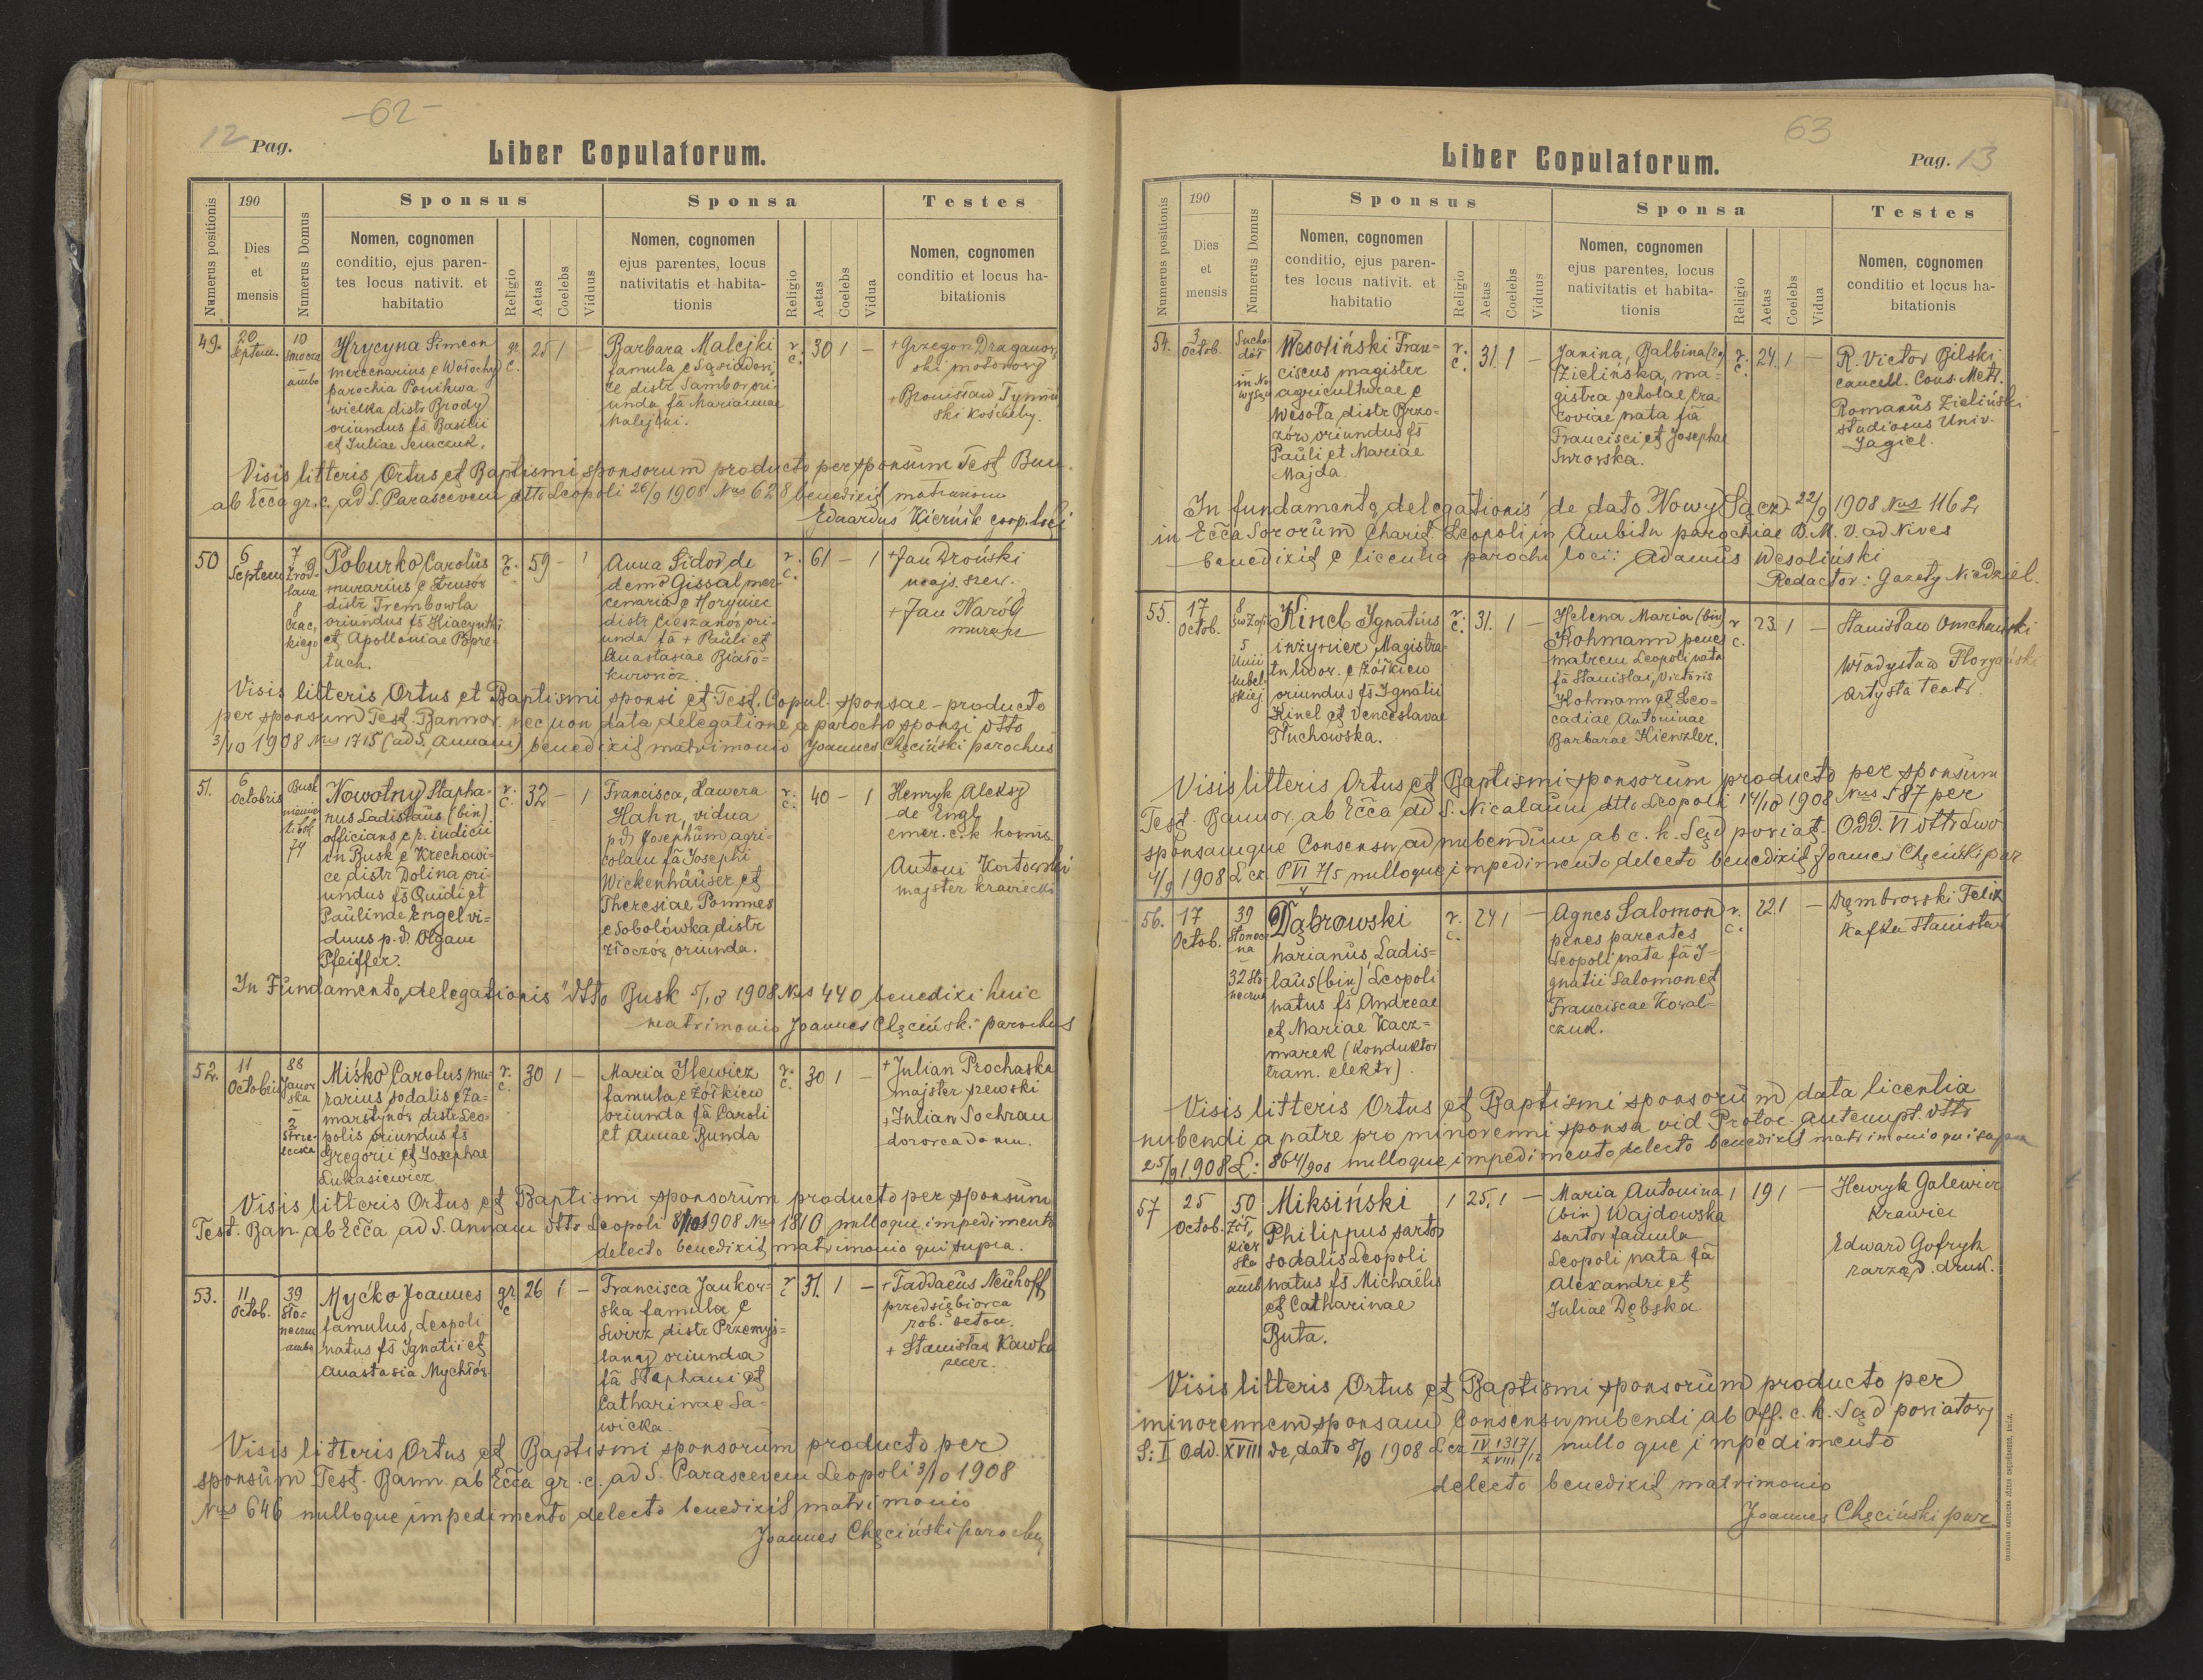 -62-
12 Pag.
Liber Copulatorum.
Numerus positionis
190
Dies
et
mensis
Numerus Domus
Sponsus
Nomen, cognomen
conditio, ejus paren-
tes locus nativit. et
habitatio
Religio
Aetas
Coelebs
Viduus
Sponsa
Nomen, cognomen
ejus parentes, locus
nativitatis et habita-
tionis
Religio
Aetas
Coelebs
Vidua
Testes
Nomen, cognomen
conditio et locus ha-
bitationis
49.
20
Septem.
10
ambo
Hrycyna Simeon
mercenarius e Wołochy
parochia Ponikwa
wielka distr Brody
oriundus fs Basilii
et Juliae Semczuk.
gr.
c.
25
1
–
Barbara Malejki
famula e
distr Sambor ori-
unda fa Mariannae
Malejki.
r.
c.
30
1
–
+ Grzegorz Draganow
ski motorowy
+ Bronisław Tymiń
ski kościelny.
Visis litteris Ortus et Baptismi sponsorum producto per sponsum Test Bann.
ab Ecca gr. c. ad S. Parascevem dtto Leopoli 26/9 1908 Nus 628 benedixit matrimonio
Eduardus Kiernik coop. loci
50
6
Septem
7
Źród-
lana
8
Czac,
kiego
Poburko Carolus
murarius e Strusów
distr Trembowla
oriundus fs Hiacynthi
et Apolloniae Popie-
tuch.
r.
c.
59
–
1
Anna Sidor de
demo Gissal mer-
cenaria e Horyniec
distr Cieszanów ori-
unda fa + Pauli et
Anastasiae Biało-
kurowicz.
r.
c.
61
–
1
+ Jan Droński
majs. szew.
+ Jan Naróg
murarz
Visis litteris Ortus et Baptismi sponsi et Test. Copul. sponsae – producto
per sponsum Test. Bannor. nec non data delegatione a parocho sponsi dtto
3/10 1908 Nus 1715 (ad S. Annam) benedixit matrimonio Joannes Chęciński parochus
51.
6
Octobris
Busk
74
Nowotny Stepha-
nus Ladislaus (bin)
officians c. r. iudicii
in Busk e Krechowi-
ce distr Dolina ori-
undus fs Quidi et
Paulinde Engel vi-
duus p. d Olgam
Pfeiffer.
r.
c.
32
–
1
Francisca, Xawera
Hahn, vidua
p d Josephum agri-
colam fa Josephi
Wickenhäuser et
Theresiae Pommes
e Sobolówka distr
Złoczów oriunda.
r.
c.
40
–
1
Henryk Aleksy
de Engl
emer. c. k. komis.
Antoni
majster krawiecki
In Fundamento „delegationis" dtto Busk 5/10 1908 Nus 440 benedixi huic
matrimonio Joannes Chęciński parochus
52.
11
Octobris
88
Janow
ska
–
2
Strze-
lecka
Miśko Carolus mu-
rarius sodalis e Za-
marstynów distr Leo-
polis oriundus fs
Gregorii et Josephae
Łukasiewicz
r.
c.
30
1
–
Maria Ilewicz
famula e Żółkiew
oriunda fa Caroli
et Annae Bunda
r.
c.
30
1
–
+ Julian Prochaska
majster szewski
+ Julian Sochran
dozorca domu.
Visis litteris Ortus et Baptismi sponsorum producto per sponsum
Test. Ban. ab Ecca ad S. Annam dtto Leopoli 8/10 1908 Nus 1810 nulloque impedimento
delecto benedixit matrimonio qui supra.
53.
11
Octob.
39
Sło-
neczna
ambo
Myćko Joannes
famulus, Leopoli
natus fs Ignatii et
Anastasia Mychłów
gr.
c
26
1
–
Francisca Jankow-
ska famula e
Swirz distr Przemyś-
lany oriunda
fa Stephani et
Catharinae Sa-
wicka.
r
c
31.
1
–
+ Taddaeus Neuhoff
przedsiębiorca
rob. beton.
+ Stanisław Kawka
Visis litteris Ortus et Baptismi sponsorum producto per
sponsum Test. Bann. ab Ecca gr. c. ad S. Parascevem Leopoli 3/10 1908
Nus 646 nulloque impedimento delecto benedixit matrimonio
Joannes Chęciński parochus
63
Liber Copulatorum.
Pag. 13
Numerus positionis
190
Dies
et
mensis
Numerus Domus
Sponsus
Nomen, cognomen
conditio, ejus paren-
tes locus nativit. et
habitatio
Religio
Aetas
Coelebs
Viduus
Sponsa
Nomen, cognomen
ejus parentes, locus
nativitatis et habita-
tionis
Religio
Aetas
Coelebs
Vidua
Testes
Nomen, cognomen
conditio et locus ha-
bitationis
54.
3
Octob.
Sucho-
dół
Wesoliński Fran-
ciscus magister
agriculturae e
Wesoła distr Brzo-
zów oriundus fs
Pauli et Mariae
Majda.
r.
c.
31.
1
–
Janina, Balbina
Zielińska, ma-
gistra scholae Cra-
coviae nata fa
Francisci et Josephae
Surowska.
r.
c.
24.
1
–
R. Victor Bilski
cancell. Cons. Metr.
Romanus Zieliński
studiosus Univ.
Jagiel.
In fundamento „delegationis" de dato Nowy Sącz 22/9 1908 Nus 1162
in Ecca Sororum Charit. Leopoli in Ambitu parochiae B. M. V. ad Nives
benedixit e licentia parochi loci: Adamus Wesoliński
Redactor: Gazety Niedziel.
55.
17
Octob.
8
św Zofii
5
Unii
lubel-
skiej
Kinel Ignatius
inżynier Magistra-
tu lwow. e Żółkiew
oriundus fs Ignatii
Kinel et Venceslavae
Tłuchowska.
r.
c.
31.
1
–
Helena Maria (bin)
Kohmann penes
matrem Leopoli nata
fa Stanislai, Victoris
Kohmann et Leo-
cadiae, Antoninae
Barbarae Kienzler.
r
c.
23.
1
–
Stanisław
Władysław Floryański
Artysta teatr.
Visis litteris Ortus et Baptismi sponsorum producto per sponsum
Test. Bannor. ab Ecca ad S. Nicolaum dtto Leopoli 14/10 1908 Nus 587 per
sponsamque Consensu ad nubendum ab c. k. Sąd powiat. Odd. VI dtto Lwów
4/9 1908 L. cz. P VI 7/5 nulloque impedimento delecto benedixit Joannes Chęciński par
4
56.
17
Octob.
39
Słonecz
na
–
32 Sło
neczna
Dąbrowski
Marianus, Ladis-
laus (bin) Leopoli
natus fs Andreae
et Mariae Kacz-
marek (Konduktor
tram. elektr).
r.
c.
24
1
–
Agnes Salomon
penes parentes
Leopoli nata fa I-
gnatii Salomon et
Franciscae Kowal-
czuk.
r.
c.
22
1
–
Dąmbrowski Felix
Kafka Stanisław
Visis litteris Ortus et Baptismi sponsorum data licentia
nubendi a patre pro minorenni sponsa vid Protoc. antenupt. dtto
25/9 1908 L: 864/908 nulloque impedimento delecto benedixit matrimonio qui supra
57
25
Octob.
50
Żół
kiew
ska
amb
Miksiński
Philippus sartor
sodalis Leopoli
natus fs Michaelis
et Catharinae
Buta.
1
25.
1
–
Maria Antonina
(bin) Wajdowska
sartor famula
Leopoli nata fa
Alexandri et
Juliae Dębska
1
19
1
–
Henryk Galewicz
Krawiec
Edward Gofryk
zarząd. druk.
Visis litteris Ortus et Baptismi sponsorum producto per
minorennem sponsam Consensu nubendi ab Off. c. k. Sąd powiatowy
S: I Odd. XVIII de dato 8/10 1908 L cz IV 1317/12 nulloque impedimento
XVIII
delecto benedixit matrimonio
Joannes Chęciński par.
DRUKARNIA KATOLICKA JÓZEFA CHĘCIŃSKIEGO, Lwów.